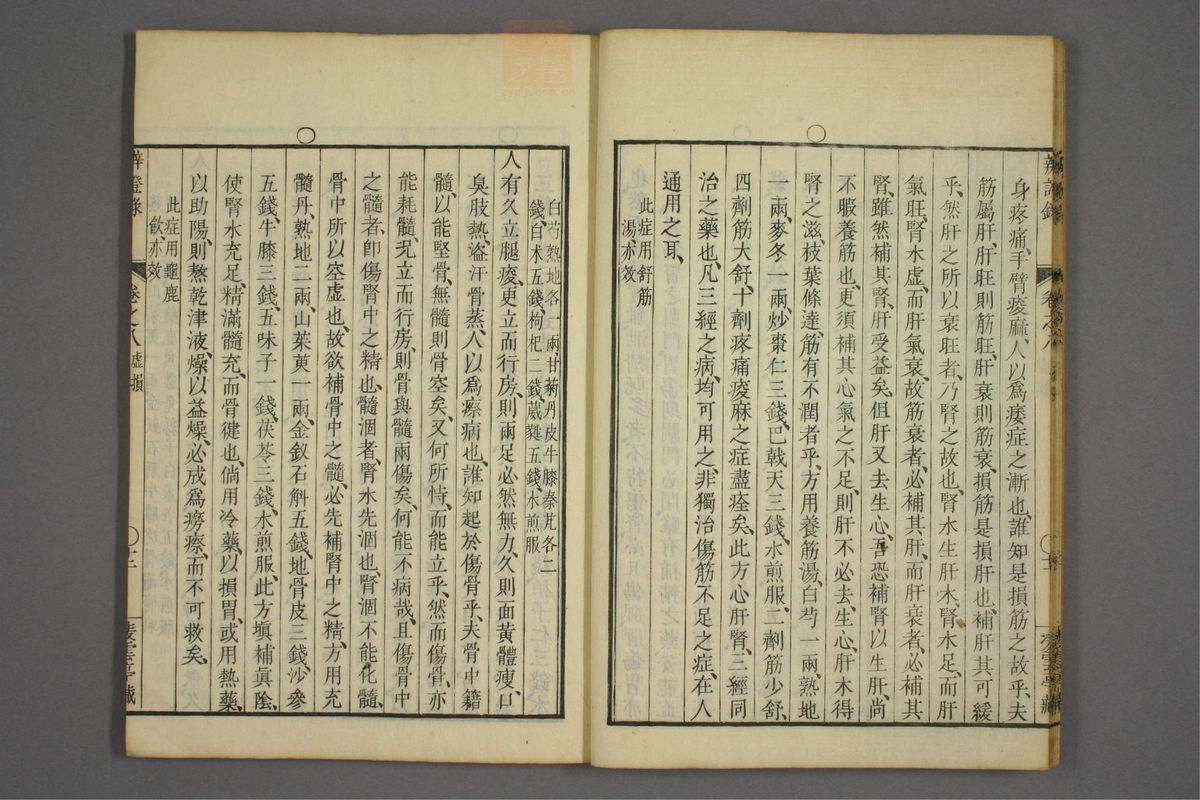 身疼痛、手臂痠麻、人以爲痿症之漸也、誰知是損筋之故乎、夫
筋屬肝、肝旺則筋旺、肝衰則筋衰、損筋是損肝也、補肝其可緩
乎、然肝之所以衰旺者、乃腎之故也、腎水生肝木、腎水足、而肝
氣旺、腎水虛、而肝氣衰、故筋衰者、必補其肝、而肝衰者、必補其
腎、雖然補其腎、肝受益矣、但肝又去生心、吾恐補腎以生肝、尚
不暇養筋也、更須補其心氣之不足、則肝不必去生心、肝木得
腎之滋、枝葉條達、筋有不潤者乎、方用養筋湯、白芍一兩、熟地
一兩、麥冬一兩、炒棗仁三錢、巴戟天三錢、水煎服、二劑筋少舒、
四劑筋大舒、十劑疼痛痠麻之症盡痊矣、此方心肝腎、三經同
治之藥也、凡三經之病、均可用之、非獨治傷筋不足之症、在人
通用之耳、
此症用舒筋
湯、亦效
白芍熟地各一兩甘菊丹皮牛膝秦艽各二
錢白术五錢枸杞二錢葳蕤五錢水煎服
人有久立腿痠、更立而行房、則兩足必然無力、久則面黃體瘦、口
臭肢熱、盜汗骨蒸、人以爲瘵病也、誰知起於傷骨乎、夫骨中籍
髓、以能堅骨、無髓則骨空矣、又何所恃、而能立乎、然而傷骨、亦
能耗髓、况立而行房、則骨與髓兩傷矣、何能不病哉、且傷骨中
之髓者、卽傷腎中之精也、髓涸者、腎水先涸也、腎涸不能化髓、
骨中所以空虛也、故欲補骨中之髓、必先補腎中之精、方用充
髓丹、熟地二兩、山茱萸一兩、金釵石斛五錢、地骨皮三錢、沙參
五錢、牛膝三錢、五味子一錢、茯苓三錢、水煎服、此方填補眞陰、
使腎水充足、精滿髓充、而骨健也、倘用冷藥、以損胃、或用熱藥、
以助陽、則熬乾津液、燥以益燥、必成爲癆瘵、而不可救矣、
此症用龜鹿
飲、亦效
辨證錄
卷之八 虛損